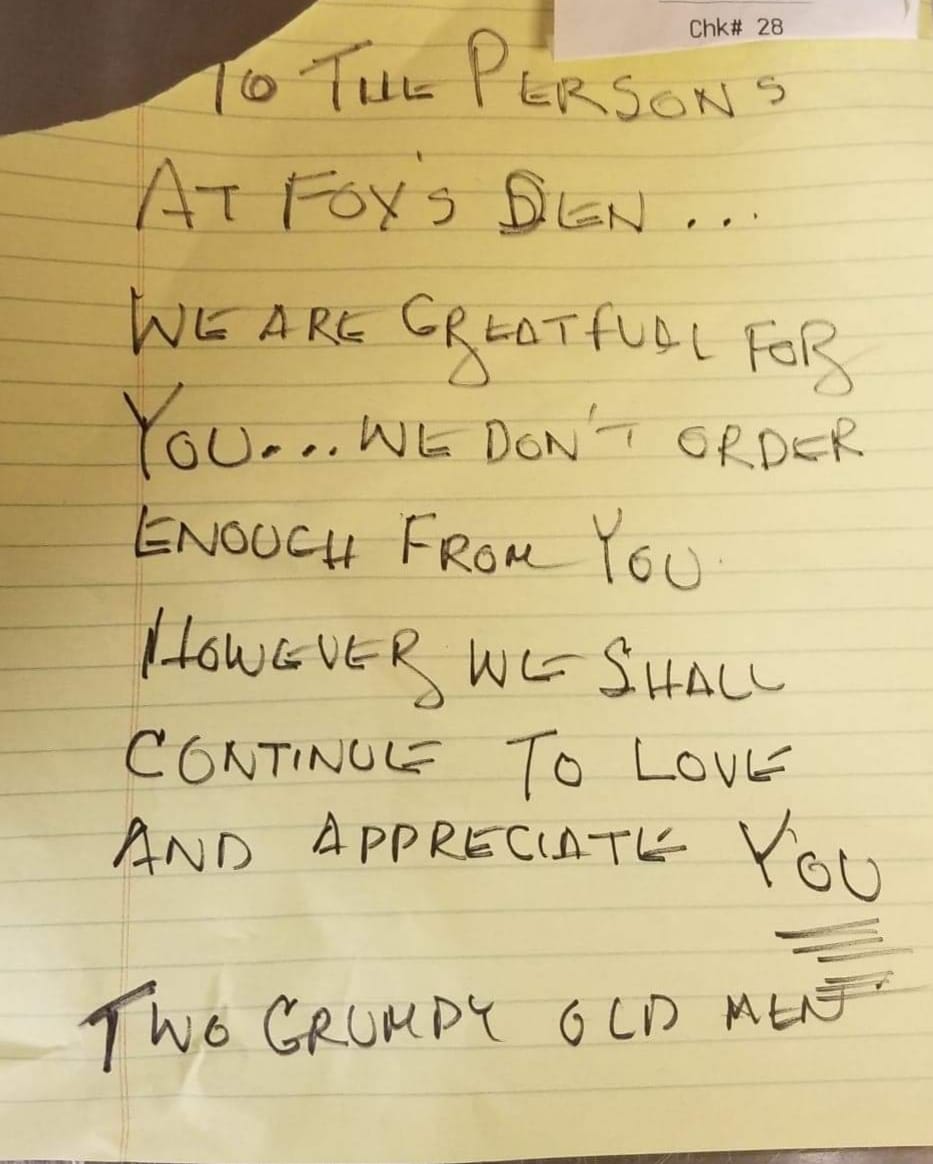 Chk# 28
TO THE PERSONS
AT FOX'S DEN ...
WE ARE GREATFUAL FOR
YOU... WE DON'T ORDER
ENOUGH FROM YOU
HOWEVER WE SHALL
CONTINUE TO LOVE
AND APPRECIATE YOU
TWO GRUMPY OLD MEN